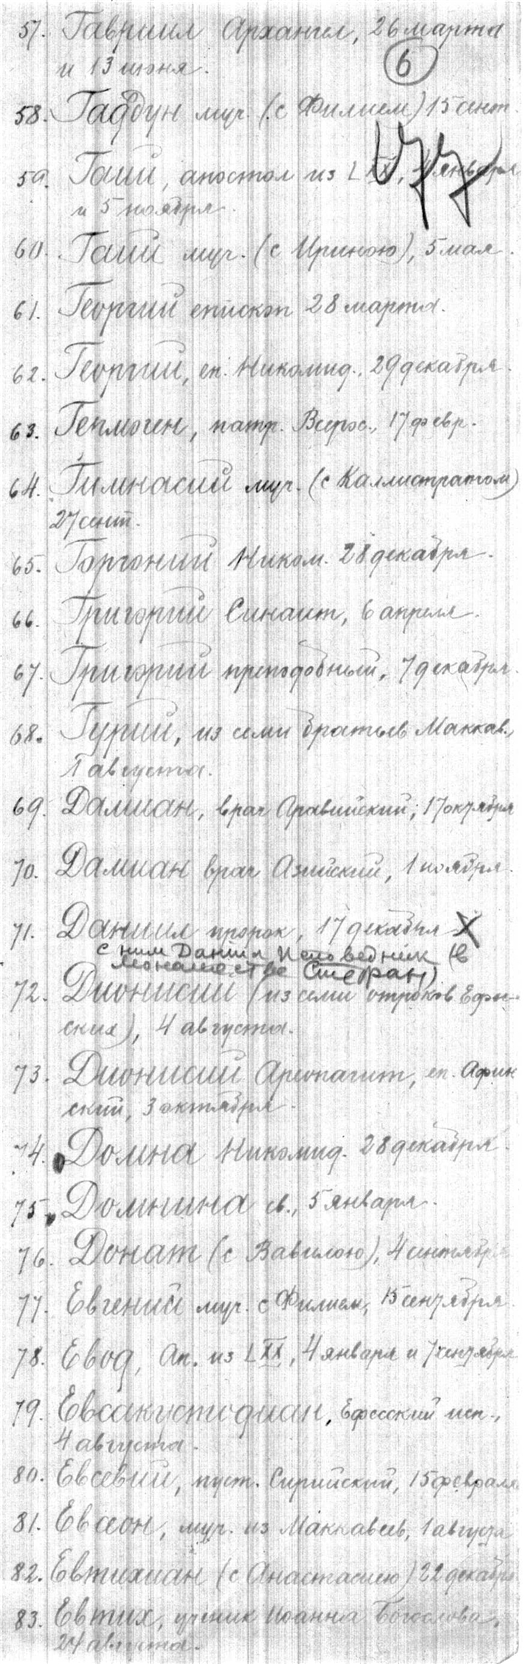 57. Гавриил Архангел, 26 марта
и 13 июня.
6
58. Гаддун муч. (с Филием) 15 сент.
177
59. Гаий, апостол из LXX, 4 января
и 5 ноября.
60. Гаий муч. (с Ириною), 5 мая.
61. Георгий епископ 28 марта.
62. Георгий, еп. Никомид., 29 декабря.
63. Гермоген, патр. Всерос., 17 февр.
64. Гимнасий муч. (с Каллистратом)
27 сент.
65. ГоргонийНиком. 28 декабря.
66. Григорий Синаит, 6 апреля.
67. Григорий преподобный, 7 декабря.
68. Гурий, из семи братьев Маккав.,
1 августа.
69. Дамиан, врач Аравийский, 17 октября
70. Дамиан врач Азийский, 1 ноября.
71. Даниил пророк, 17 декабря X
с ним Даниил исповедник (в
монашестве Стефан)
72. Дионисий (из семи отроков Ефес-
ских), 4 августа.
73. Дионисий Ареопагит, еп. Афин
ский, 3 октября.
74. Домна Никомид. 28 декабря.
75. Домнина св., 5 января.
76. Донат (с Вавилою), 4 сентября
77. Евгений муч. с Филием, 15 сентября.
78. Евод, Ап. из LXX, 4 января и 7 сентября
79. Евсакустодиан, Ефесский исп.,
4 августа.
80. Евсевий, пуст. Сирийский, 15 февраля
81. Евсеон, муч. из Маккавеев, 1 августа
82. Евтихиан (с Анастасиею) 22 декабря
83. Евтих, ученик Иоанна Богослова,
24 августа.